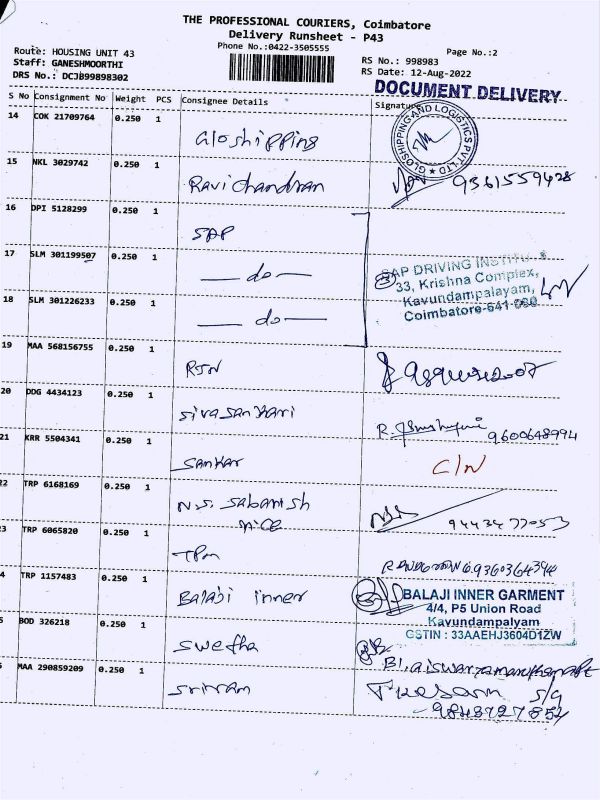 THE PROFESSIONAL COURIERS, Coimbatore
Delivery Runsheet - P43
Phone No.:0422-3505555
Page No.:2
Route: HOUSING UNIT 43
Staff: GANESHMOORTHI
DRS No.: DCJB99898302
RS No.: 998983
RS Date: 12-Aug-2022
DOCUMENT DELIVERY
S No Consignment No Weight PCS Consignee Details Signature
14 COK 21709764 0.250 1 Gloshipping
GLOSHIPPING AND LOGISTICS PVT LTD
15 NKL 3029742 0.250 1 Ravichandran 9361559428
16 DPI 5128299 0.250 1 SAP
17 SLM 301199507 0.250 1 — do —
SAP DRIVING
33, Krishna Complex,
Kavundampalayam,
Coimbatore-641 030
18 SLM 301226233 0.250 1 — do —
19 MAA 568156755 0.250 1 RJN
20 DDG 4434123 0.250 1 Sivasankari R. 9600648994
21 KRR 5504341 0.250 1 Sankar C/N
22 TRP 6168169 0.250 1 N.S. Sabarish 9443477053
3 TRP 6065820 0.250 1 TPM 9360364394
4 TRP 1157483 0.250 1 Balaji inner
BALAJI INNER GARMENT
4/4, P5 Union Road
Kavundampalyam
GSTIN : 33AAEHJ3604D1ZW
BOD 326218 0.250 1 Swetha
MAA 290859209 0.250 1 Sriram
9843727854